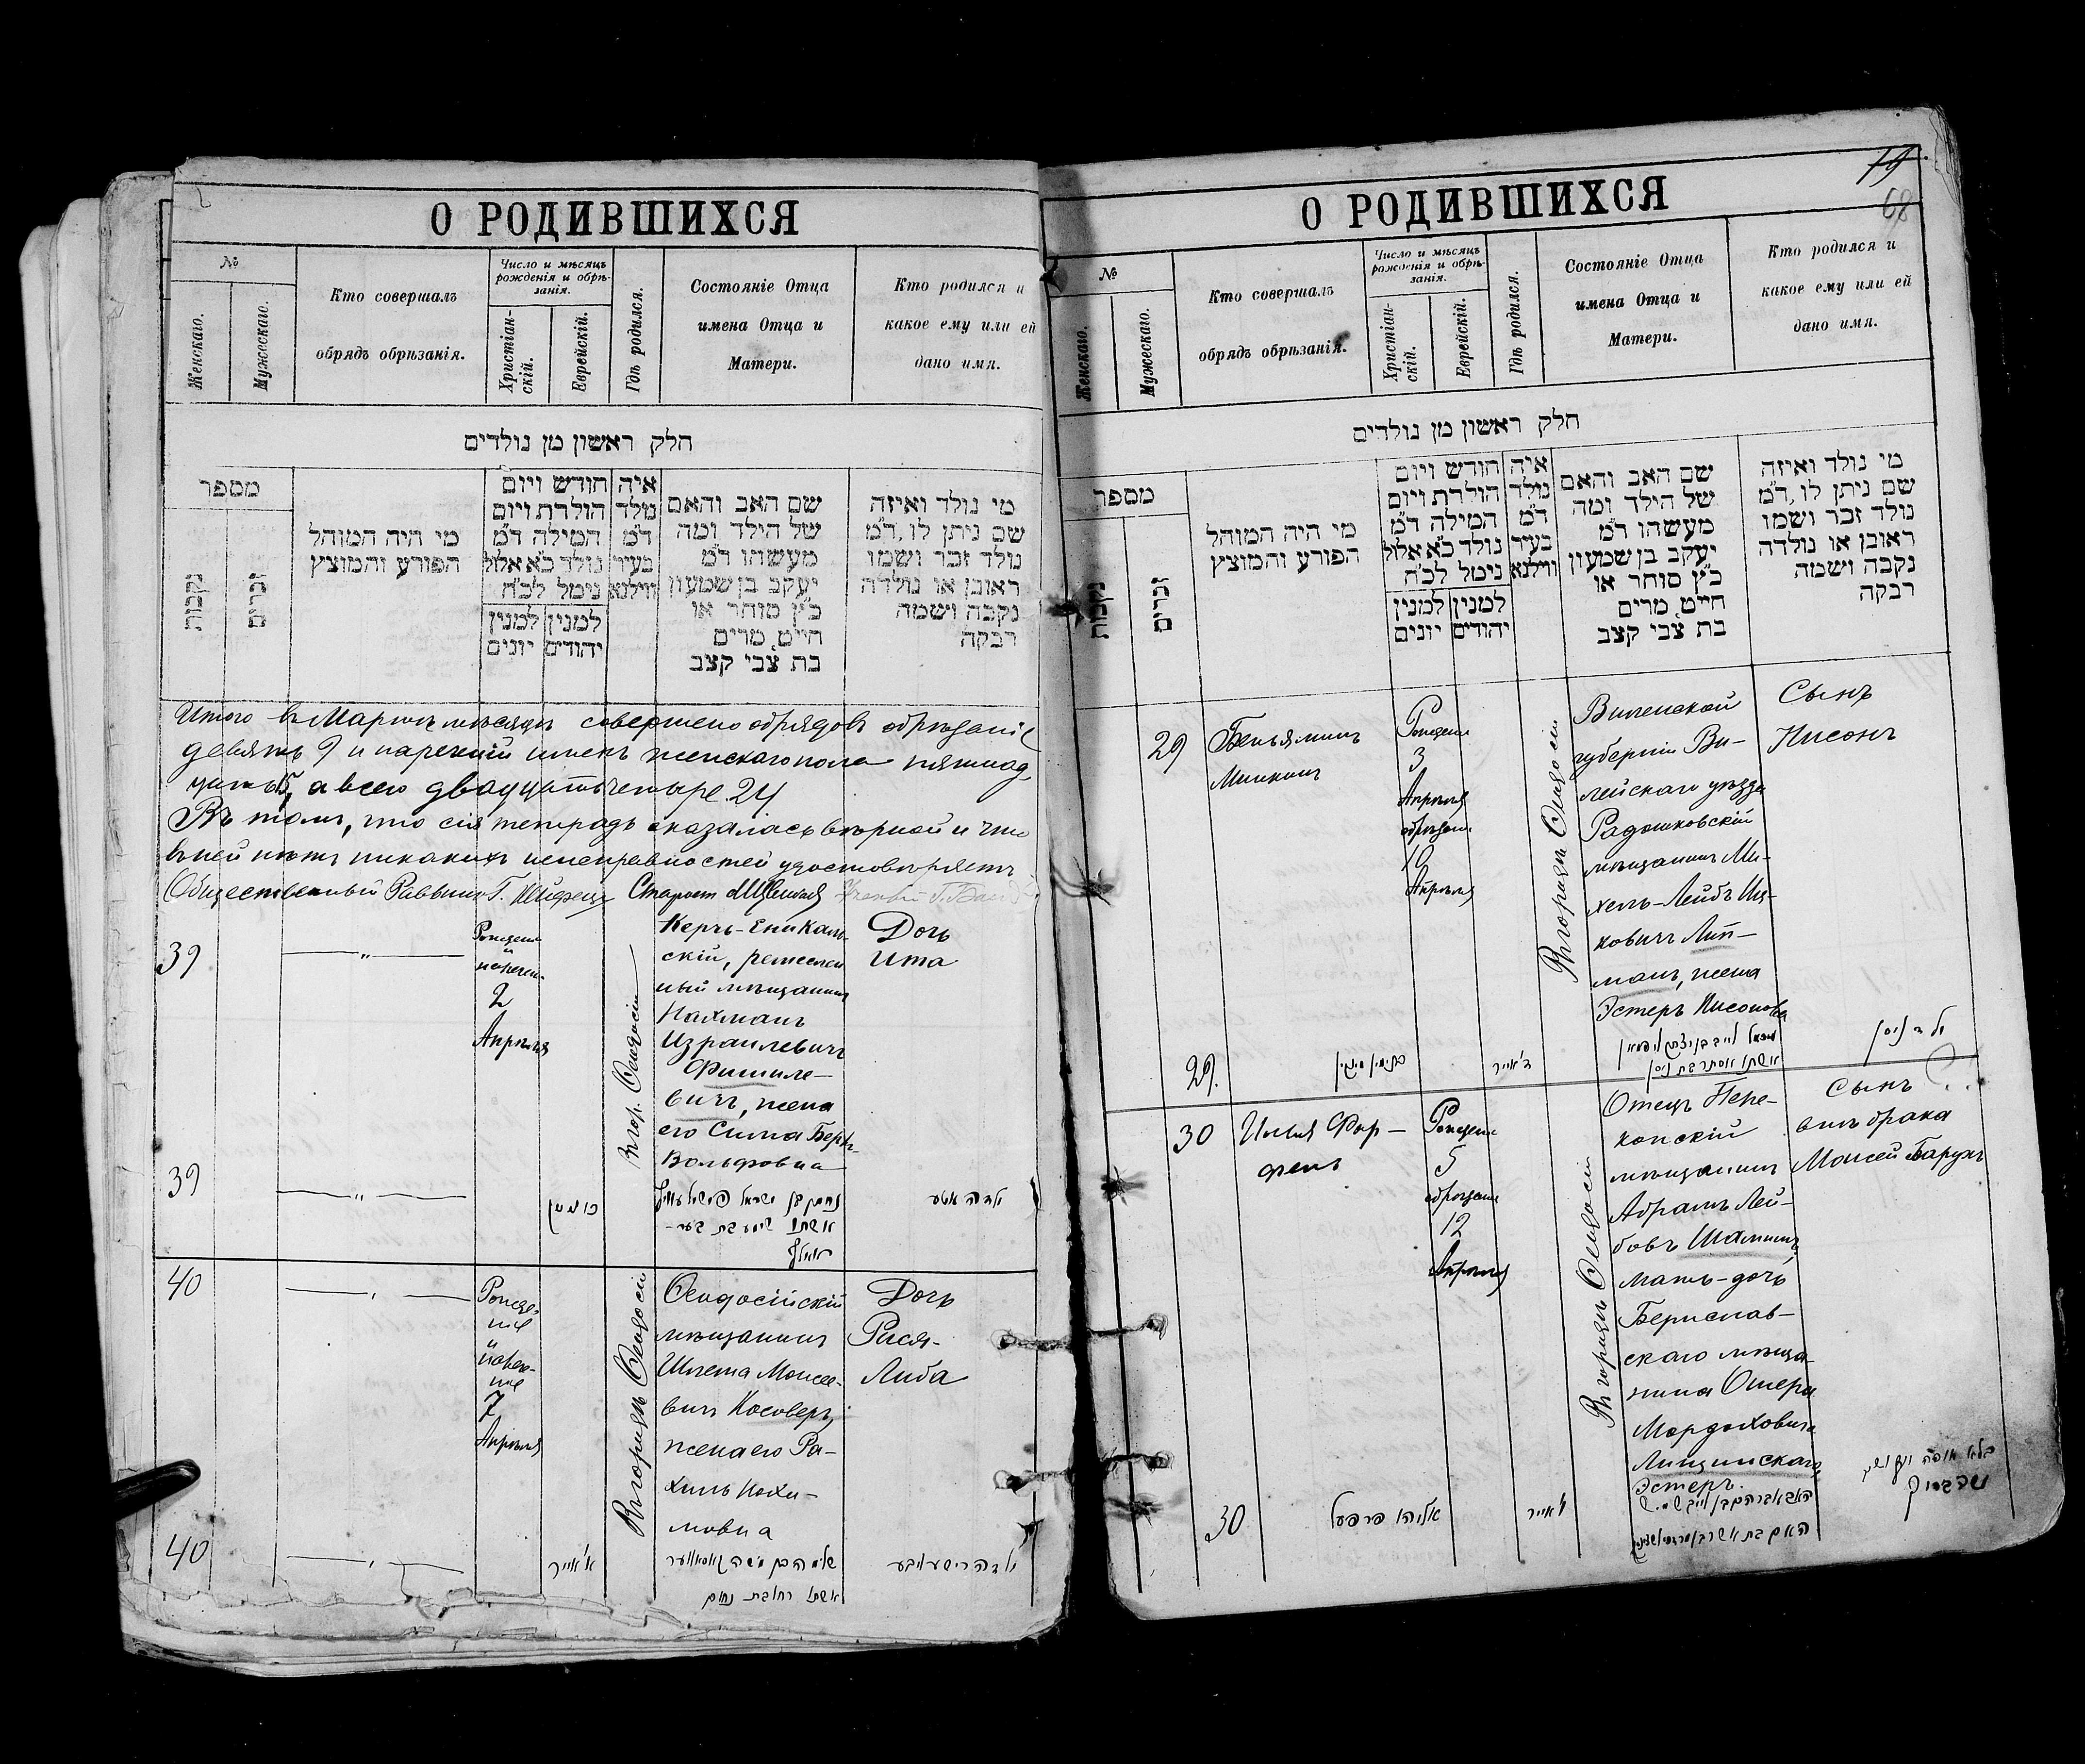 О РОДИВШИХСЯ
№
Женскаго.
Мужескаго.
Кто совершалъ
обрядъ обрѣзанія.
Число и мѣсяцъ
рожденія и обрѣ-
занія.
Христіан-
скій.
Еврейскій.
Гдѣ родился.
Состояніе Отца
имена Отца и
Матери.
Кто родился и
какое ему или ей
дано имя.
חלק ראשון מן נולדים
מספר
נקבות
זכרים
מי היה המוהל
הפורע והמוצץ
חודש ויום
הולדת ויום
המילה ד"מ
נולד כ"א אלול
נימל לכ"ח
למנין
יונים
למנין
יהודים
איה
נולד
ד"מ
בעיר
ווילנא
שם האב והאם
של הילד ומה
מעשהו ד"מ
יעקב בן שמעון
כ"ץ סוחר או
חייט, מרים
בת צבי קצב
מי נולד ואיזה
שם ניתן לו, ד"מ
נולד זכר ושמו
ראובן או נולדה
נקבה ושמה
רבקה
Итого въ Мартѣ мѣсяцѣ совершено обрядовъ обрѣзанія
девять 9 и нареченій именъ женскаго пола пятнад
цать 15, а всего двадцать четыре 24
Въ томъ, что сія тетрадь оказалась вѣрной и что
въ ней нѣтъ никакихъ неисправностей удостовѣряетъ
Общественный Раввинъ Г. Староста
39
Рожденіе
и
нареч.
2
Апрѣля
въ гор. Ѳеодосіи
Керчь-Еникаль-
скій, ремеслен
ный мѣщанинъ
Нахманъ
Израилевичъ
Фишиле-
вичъ, жена
его Сима Беръ-
Вольфовна
Дочь
Ита
39
נחמן בן ישראל פישילעוויץ
אשתו סימע בת בער-
וואלף
ילדה איטע
40
Рожде-
ніе
и
нарече-
ніе
7
Апрѣля
въ городѣ Ѳеодосіи
Ѳеодосійскій
мѣщанинъ
Шлема Моисее-
вичъ Косоверъ,
жена его Ра-
хиль Нохи-
мовна
Дочь
Рися-
Либа
40
א' אייר
שלמה בן משה קאסאווער
אשתו רחל בת נחום
ילדה רישע ליבע
О РОДИВШИХСЯ
19
68
№
Женскаго.
Мужескаго.
Кто совершалъ
обрядъ обрѣзанія.
Число и мѣсяцъ
рожденія и обрѣ-
занія.
Христіан-
скій.
Еврейскій.
Гдѣ родился.
Состояніе Отца
имена Отца и
Матери.
Кто родился и
какое ему или ей
дано имя.
חלק ראשון מן נולדים
מספר
נקבות
זכרים
מי היה המוהל
הפורע והמוצץ
חודש ויום
הולדת ויום
המילה ד"מ
נולד כ"א אלול
נימל לכ"ח
למנין
יונים
למנין
יהודים
איה
נולד
ד"מ
בעיר
ווילנא
שם האב והאם
של הילד ומה
מעשהו ד"מ
יעקב בן שמעון
כ"ץ סוחר או
חייט, מרים
בת צבי קצב
מי נולד ואיזה
שם ניתן לו, ד"מ
נולד זכר ושמו
ראובן או נולדה
נקבה ושמה
רבקה
29
Беньяминъ
Минкинъ
Рожденіе
3
Апрѣля
обрѣзаніе
10
Апрѣля
Въ городѣ Ѳеодосіи
Виленской
губерніи Ви-
лейскаго уѣзда
Радошковскій
мѣщанинъ Ми-
хель-Лейбъ Иц-
ковичъ Лип-
манъ, жена
Эстеръ Нисонова
Сынъ
Нисонъ
29.
בנימין מינקין
ד' אייר
מיכאל לייב בן יצחק ליפמאן
אשתו אסתר בת ניסן
ילד ניסן
30
Илья Фар-
фель
Рожденіе
5
обрѣзаніе
12
Апрѣля
Въ городѣ Ѳеодосіи
Отецъ Пере-
копскій
мѣщанинъ
Абрамъ Лей-
бовъ Шаминъ,
мать-дочь
Берислав-
скаго мѣща-
нина Ошера
Мордоховича
Лищинскаго,
Эстеръ.
Сынъ
внѣ брака
Моисей Барухъ
30
אליהו פרפעל
ו' אייר
האב אברהם בן לייב
האם בת אשר בן מרדכי
בלא חופה וקדושין
משה ברוך